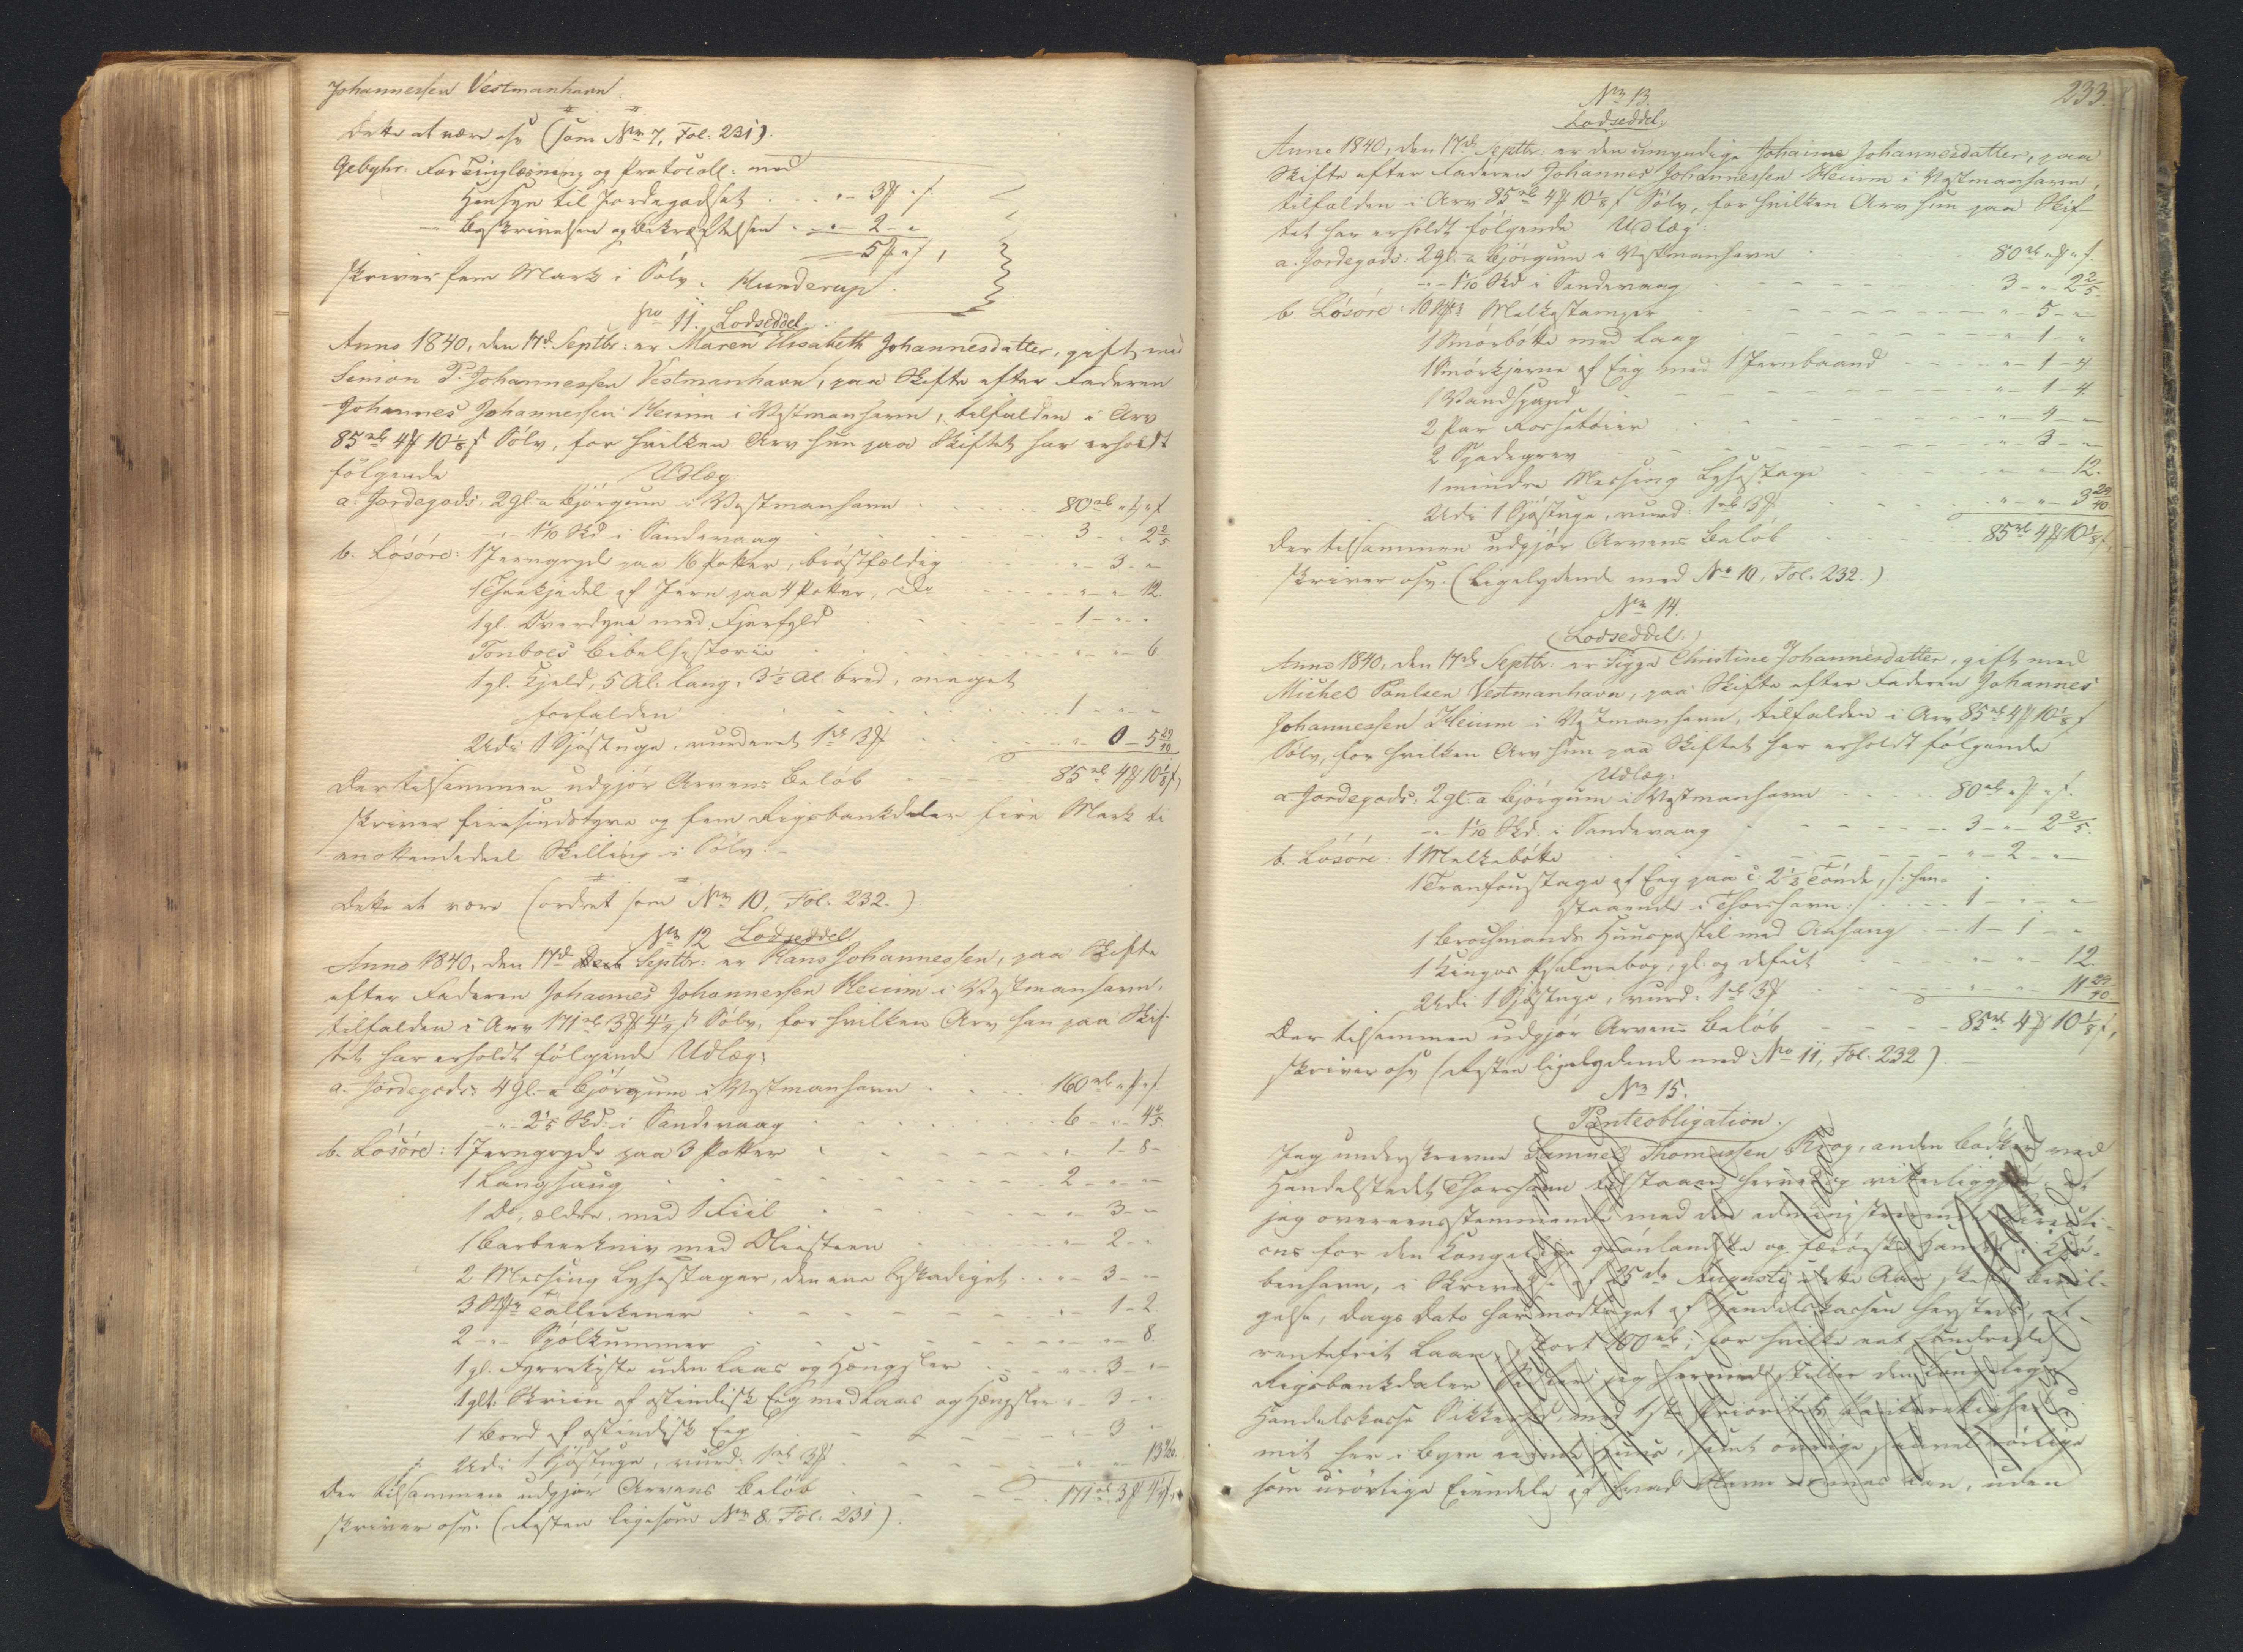 Johannessen Vestmanhavn.
Dette at være osv (som No 7, Fol. 231).
Gebyhr: For Tinglæsning og Protocoll. med
Hensyn til Jordegodset . . . " - 3 ℳ " ß.
" Beskrivelsen og Bekræftelsen . " - 2 - "
5 ℳ " ß,
skriver fem Mark i Sølv. Hunderup.
No 11. Lodseddel.
Anno 1840, den 17de Septbr: er Maren Elisabeth Johannesdatter, gift med
Simon P. Johannessen Vestmanhavn, paa Skifte efter Faderen
Johannes Johannessen Heium i Westmanhavn, tilfalden i Arv
85 rb 4 ℳ 10⅛ ß Sølv, for hvilken Arv hun paa Skiftet har erholdt
følgende Udlæg
a. Jordegods: 2 gl. a Bjørgum i Westmanhavn . . . 80 rb " ℳ " ß
" - 1 1/10 Skd i Sandevaag 3 - " 2 2/5
b. Løsøre: 1 Jerngryde paa 16 Potter, brøstfældig " - 3 - "
1 Theekjedel af Jern paa 4 Potter, Do " - " - 12.
1 gl. Overdyne med Fjerfyld 1 - " - "
Tonboes Bibelhistorie " - " - 6
1 gl. Hjeld, 5 Al. lang, 3½ Al. bred, meget
forfalden 1 - " - "
Udi 1 Hjøstuge, vurderet 1 rb 3 ℳ " - 0 - 5 29/40
Der tilsammen udgjør Arvens Beløb 85 rb 4 ℳ 10⅛ ß,
skriver firesindstyve og fem Rigsbankdaler fire Mark ti
en ottendedeel Skilling i Sølv. -
Dette at være (ordret som No 10, Fol. 232.)
No 12 Lodseddel.
Anno 1840, den 17de Septbr: er Hans Johannessen, paa Skifte
efter Faderen Johannes Johannessen Heium i Westmanhavn,
tilfalden i Arv 171 rb 3 ℳ 4¼ ß Sølv, for hvilken Arv han paa Skif-
tet har erholdt følgende Udlæg:
a. Jordegods: 4 gl. a Bjørgum i Westmanhavn . . 160 rb " ℳ " ß
" - 2 1/5 Skd. i Sandevaag 6 - " 4 4/5
b. Løsøre: 1 Jerngryde paa 3 Potter " 1 - 8 -
1 Langhaug 2 - " - "
1 Do, ældre, med 1 Fiil " - 3 - "
1 Barbeerkniv med Oliesteen " - 2 - "
2 Messing Lysestager, den ene beskadiget . . " - 3 - "
3 Stkr Tallerkener " - 1 - 2
2 - " - Spølkummer " - " - 8.
1 gl. Fyrrekiste uden Laas og Hængsler " - 3 - "
1 glt. Skriin af ostindisk Eeg med Laas og Hængsler " - 3 - "
1 Bord af ostindisk Eeg " - 3 "
Udi 1 Hjøstuge, vurd. 1 rb 3 ℳ " - " -
Der tilsammen udgjør Arvens Beløb 171 rb 3 ℳ 4¼ ß,
skriver osv. (Resten ligesom No 8, Fol. 231).
233.
No 13.
Lodseddel.
Anno 1840, den 17de Septbr: er den umyndige Johanne Johannesdatter, paa
Skifte efter Faderen Johannes Johannessen Heium i Westmanhavn,
tilfalden i Arv 85 rb 4 ℳ 10⅛ ß Sølv, for hvilken Arv hun paa Skif-
tet har erholdt følgende Udlæg:
a. Jordegods: 2 gl. a Bjørgum i Westmanhavn 80 rb " ℳ " ß.
" - 1 1/10 Skd i Sandevaag 3 - " - 2 2/5
b. Løsøre: 10 Stkr Melkestamper " - 5 - "
1 Smørbøtte med Laag " - 1 - "
1 Smørkjerne af Eeg med 1 Jernbaand " - 1 - 4
1 Vandspand " - 1 - 4.
2 Par " - 4 - "
2 Spadegrev " - 3 - "
1 mindre Messing Lysestage " - " 12.
Udi 1 Hjøstuge, vurd. 1 rb 3 ℳ " - " - 3 29/40
Der tilsammen udgjør Arvens Beløb 85 rb 4 ℳ 10⅛ ß,
skriver osv. (Ligelydende med No 10, Fol. 232.)
No 14.
Lodseddel.
Anno 1840, den 17de Septbr: er Sigga Christine Johannesdatter, gift med
Michel Poulsen Vestmanhavn, paa Skifte efter Faderen Johannes
Johannessen Heium i Westmanhavn, tilfalden i Arv 85 rb 4 ℳ 10⅛ ß
Sølv, for hvilken Arv hun paa Skiftet har erholdt følgende
Udlæg:
a. Jordegods: 2 gl. a Bjørgum i Westmanhavn 80 rb " ℳ " ß.
" - 1 1/10 Skd. i Sandevaag 3 - " - 2 2/5.
b. Løsøre: 1 Melkebøtte " - 2 - "
1 Tranfoustage af Eeg paa c: 2½ Tønde, /: hen-
staaende i Thorshavn :/ 1 - " - "
1 Brochmands Huuspostil med Anhang 1 - 1 - "
1 Kingos Psalmebog, gl. og defect " - " - 12.
Udi 1 Hjøstuge, vurd. 1 rb 3 ℳ " - " - 11 29/40.
Der tilsammen udgjør Arvens Beløb 85 rb 4 ℳ 10⅛ ß,
skriver osv (Resten ligelydende med No 11, Fol. 232).
No 15.
Panteobligation.
Jeg underskrevne Samuel Thomassen Krog, anden Bødker ved
Handelstedet Thorshavn tilstaaer herved og vitterliggjør, at
jeg overeensstemmende med den administrerende Directi-
ons for den Kongelige grønlandske og færøeske Handel i Kjø-
benhavn, i Skrivelse af 25de Augusti dette Aar skete Bevil-
gelse, Dags Dato har modtaget af Handelskassen hersteds, et
rentefrit Laan, stort 100 rb; for hvilke eet hundrede
Rigsbankdaler Sølv jeg hermed stiller den kongelige
Handelskasse Sikkerhed, med 1ste Prioritets Panterettighed i
mit her i Byen eiende Huus, samt øvrige saavel rørlige
som urørlige Eiendele af hvad Navn nævnes kan, uden